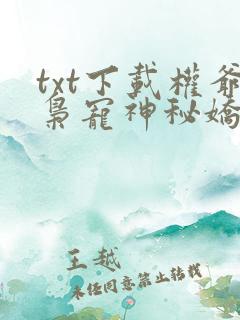 txt下載權爺
梟寵神秘嬌
王越
未經同意禁止轉載